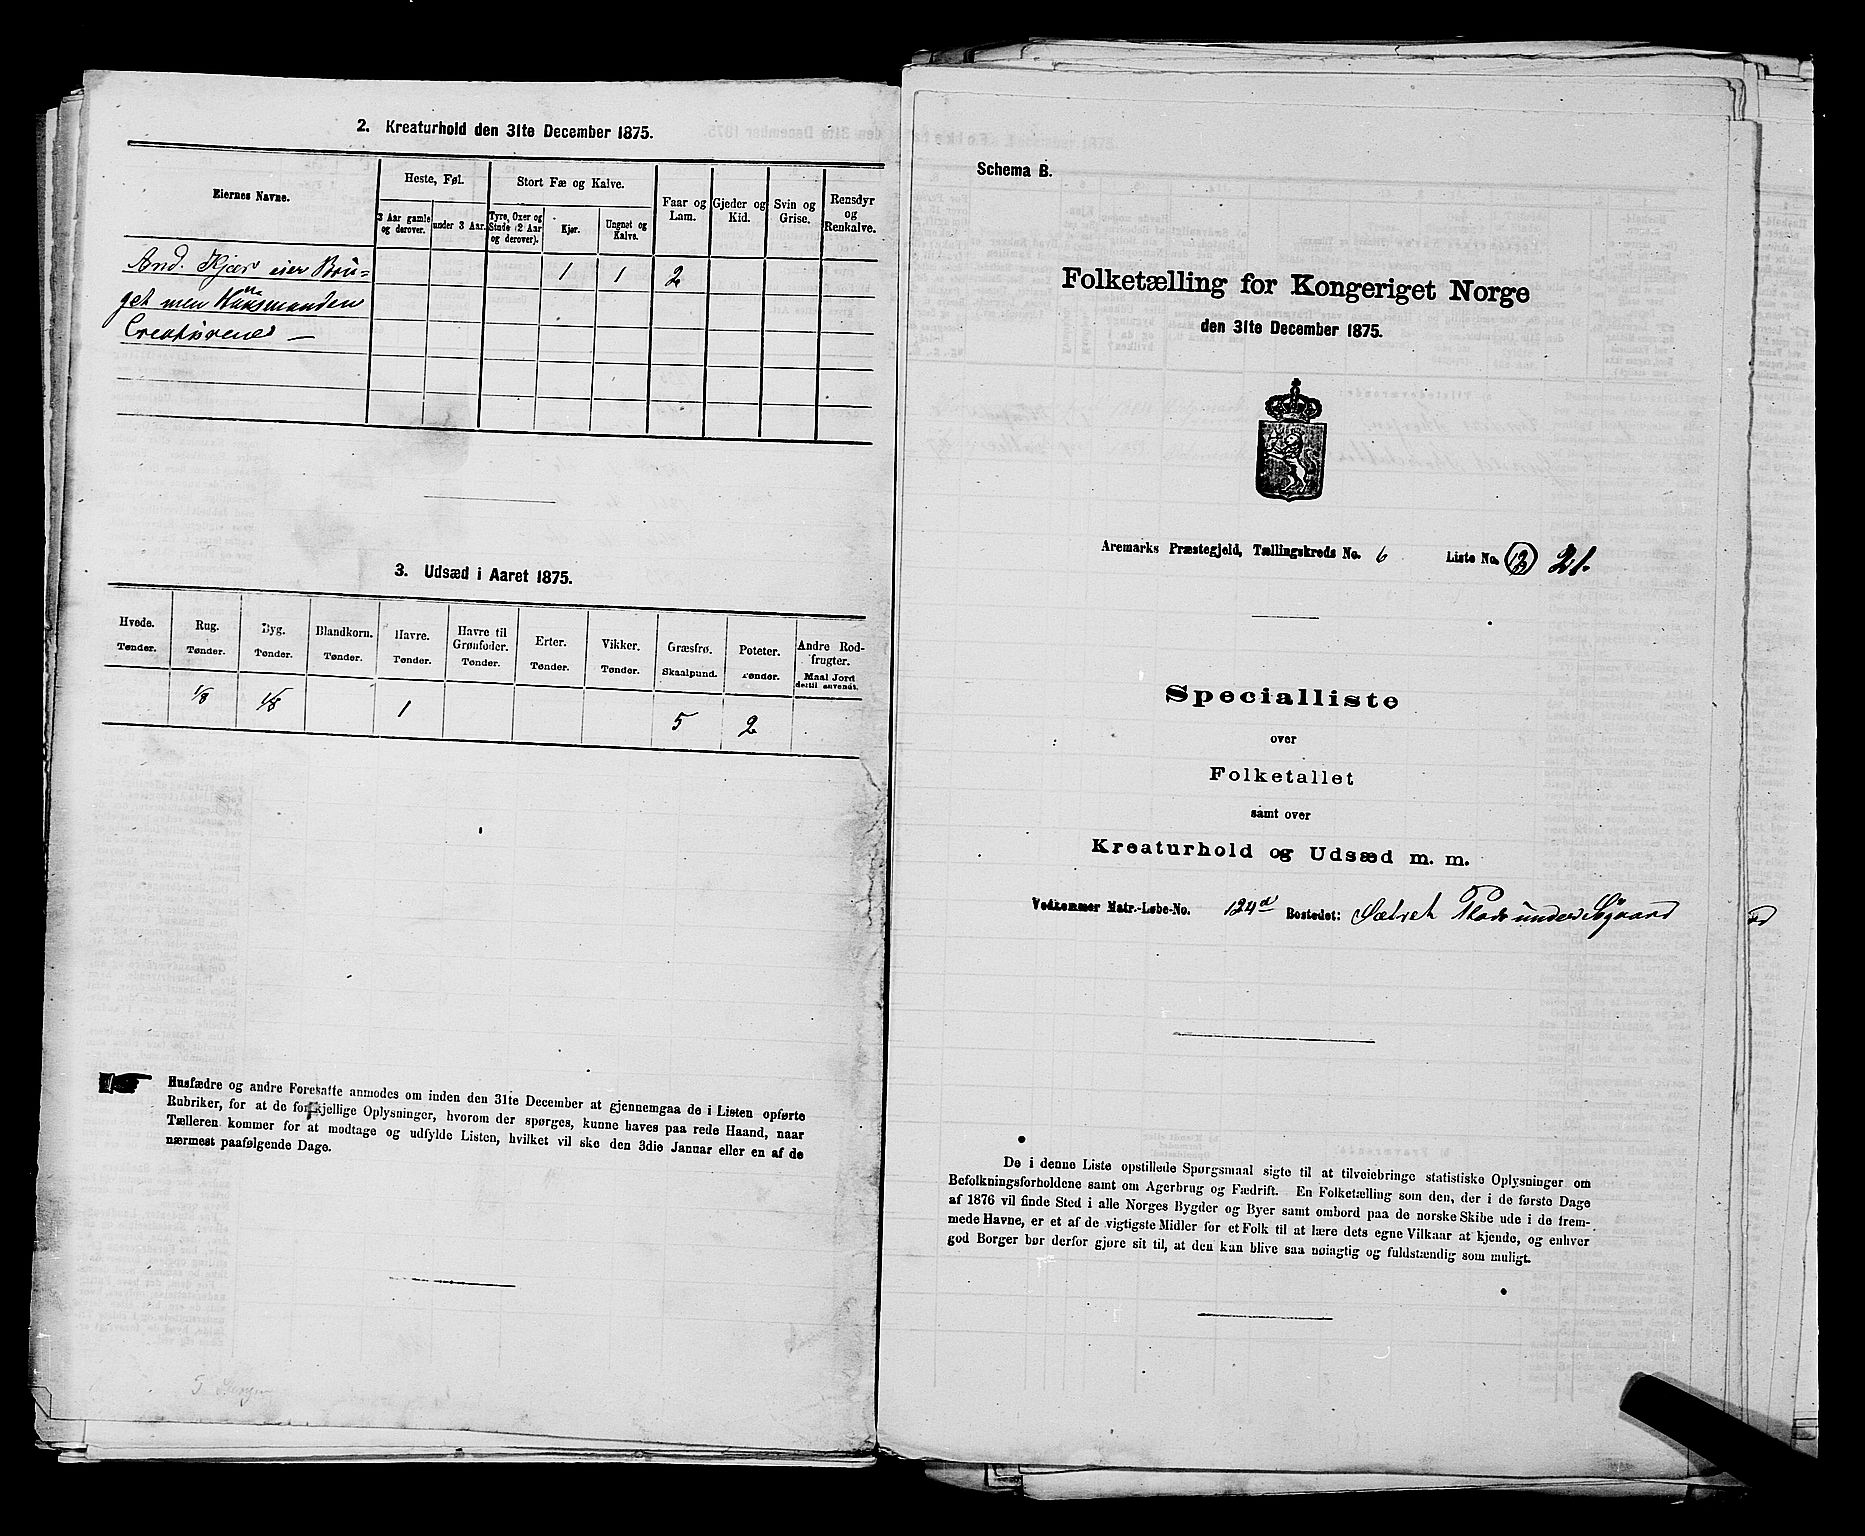 2. Kreaturhold den 31te December 1875.
Eiernes Navne.
Heste, Føl.
Stort Fæ og Kalve.
Faar og Lam.
Gjeder og Kid.
Svin og Grise.
Rensdyr og Renkalve.
3 Aar gamle og derover.
under 3 Aar.
Tyre, Oxer og Stude (2 Aar og derover).
Kjør.
Ungnøt og Kalve.
And. Kjær eier Bru-
1 1 2
get men Huusmanden
Creaturene —
3. Udsæd i Aaret 1875.
Hvede. Rug. Byg. Blandkorn. Havre. Havre til Grønfoder. Erter. Vikker. Græsfrø. Poteter. Andre Rodfrugter.
Tønder. Tønder. Tønder. Tønder. Tønder. Tønder. Tønder. Tønder. Skaalpund. Tønder. Maal Jord dertil anvendt.
1/8 1/8 1 5 2
Husfædre og andre Foresatte anmodes om inden den 31te December at gjennemgaa de i Listen opførte
Rubriker, for at de forskjellige Oplysninger, hvorom der spørges, kunne haves paa rede Haand, naar
Tælleren kommer for at modtage og udfylde Listen, hvilket vil ske den 3die Januar eller en af de
nærmest paafølgende Dage.
Schema B.
Folketælling for Kongeriget Norge
den 31te December 1875.
Aremarks Præstegjeld, Tællingskreds No. 6 Liste No. 21.
Specialliste
over
Folketallet
samt over
Kreaturhold og Udsæd m. m.
Vedkommer Matr.-Løbe-No. 124d Bostedet: Sætret Plads under Søgaard
De i denne Liste opstillede Spørgsmaal sigte til at tilveiebringe statistiske Oplysninger om
Befolkningsforholdene samt om Agerbrug og Fædrift. En Folketælling som den, der i de første Dage
af 1876 vil finde Sted i alle Norges Bygder og Byer samt ombord paa de norske Skibe ude i de frem-
mede Havne, er et af de vigtigste Midler for et Folk til at lære dets egne Vilkaar at kjende, og enhver
god Borger bør derfor gjøre sit til, at den kan blive saa nøiagtig og fuldstændig som muligt.